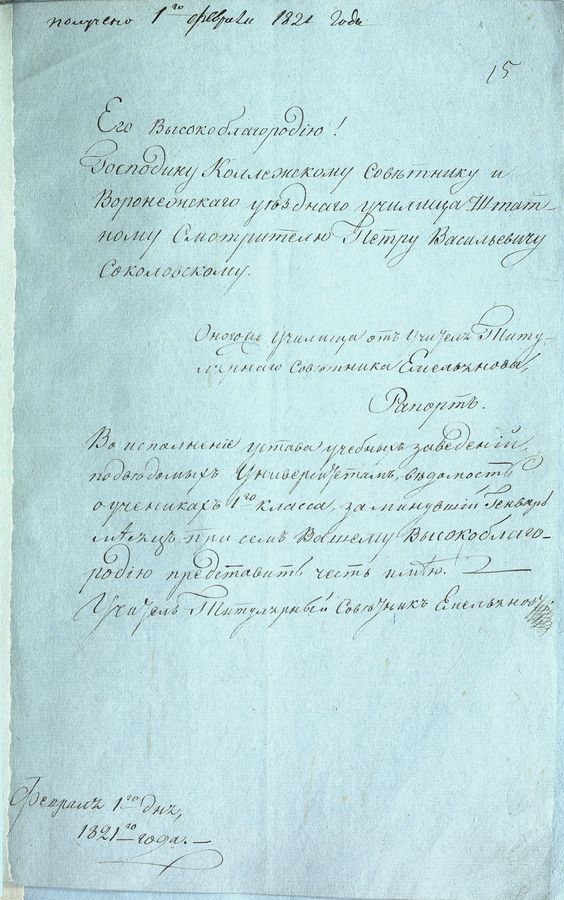 получено 1го февраля 1821 года
15
Его Высокоблагородію!
Господину Коллежскому Совѣтнику и
Воронежскаго уѣзднаго училища Штат-
ному Смотрителю Петру Васильевичу
Соколовскому.
Онаго училища отъ учителя Титу-
лярнаго Совѣтника Емельянова,
Рапортъ.
Во исполненіе устава учебныхъ заведеній,
подвѣдомыхъ Университетамъ, вѣдомость
о ученикахъ 1го класса, за минувшій Генварь
мѣсяцъ при семъ Вашему Высокоблаго-
родію представить честь имѣю.
Учитель Титулярный Совѣтникъ Емельяновъ.
Февраля 1го дня,
1821го года.